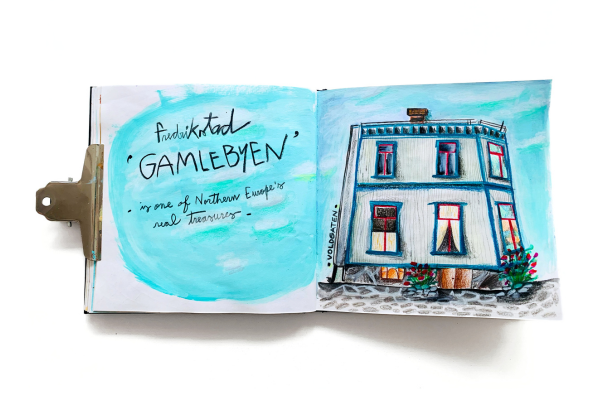 Fredrikstad
"GAMLEBYEN"
- is one of Northern Europe's
real treasures -
• VOLDGATEN •